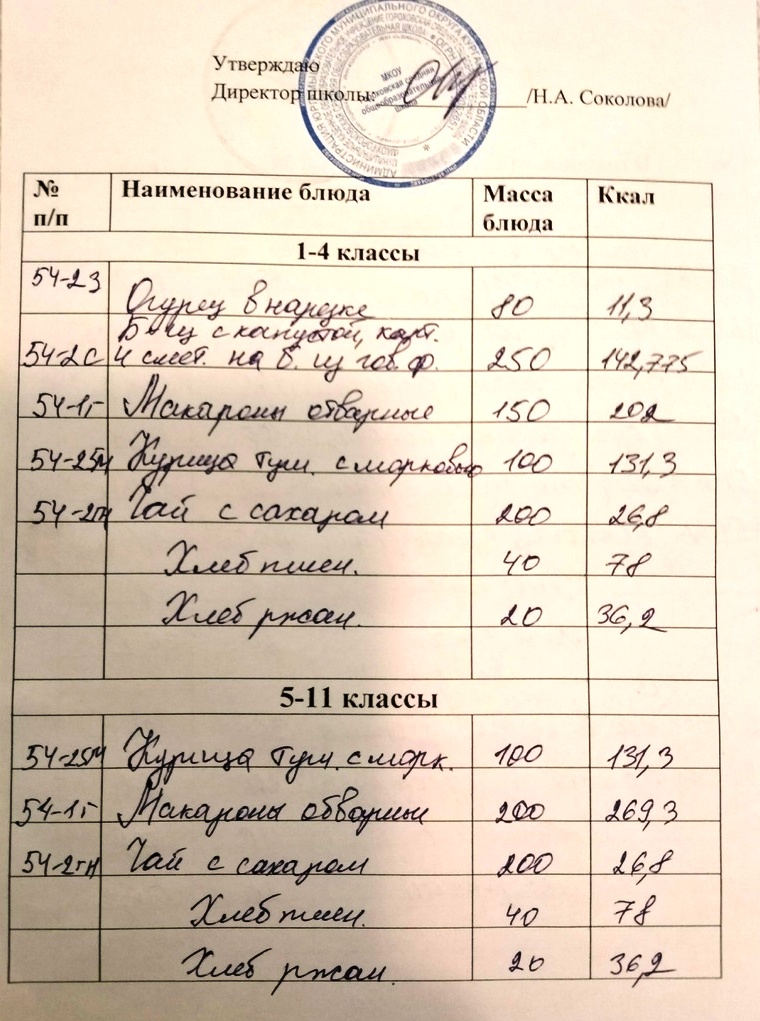 Утверждаю
Директор школы: /Н.А. Соколова/
МКОУ
средняя
общеобразовательная
школа
№ п/п Наименование блюда Масса блюда Ккал
1-4 классы
54-2з Огурец в нарезке 80 11,3
Б-щ с капустой, карт.
54-2с и смет. на б. из гов. ф. 250 142,775
54-1г Макароны отварные 150 202
54-25м Курица туш. с морковью 100 131,3
54-2гн Чай с сахаром 200 26,8
Хлеб пшен. 40 78
Хлеб ржан. 20 36,2
5-11 классы
54-25м Курица туш. с морк. 100 131,3
54-1г Макароны отварные 200 269,3
54-2гн Чай с сахаром 200 26,8
Хлеб пшен. 40 78
Хлеб ржан. 20 36,2